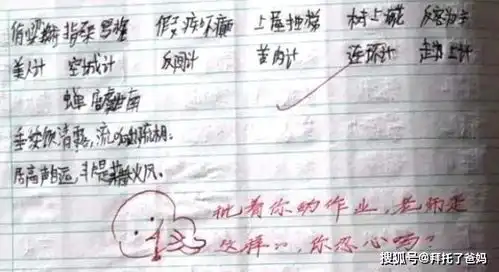 偷梁换柱 指桑骂槐 假痴不癫 上屋抽梯 树上开花 反客为主
美人计 空城计 反间计 苦肉计 连环计 走为上计
蝉 虞世南
垂緌饮清露，流响出疏桐。
居高声自远，非是藉秋风。
批着你的作业，老师是
这样，你忍心吗？
搜狐号@拜托了爸妈